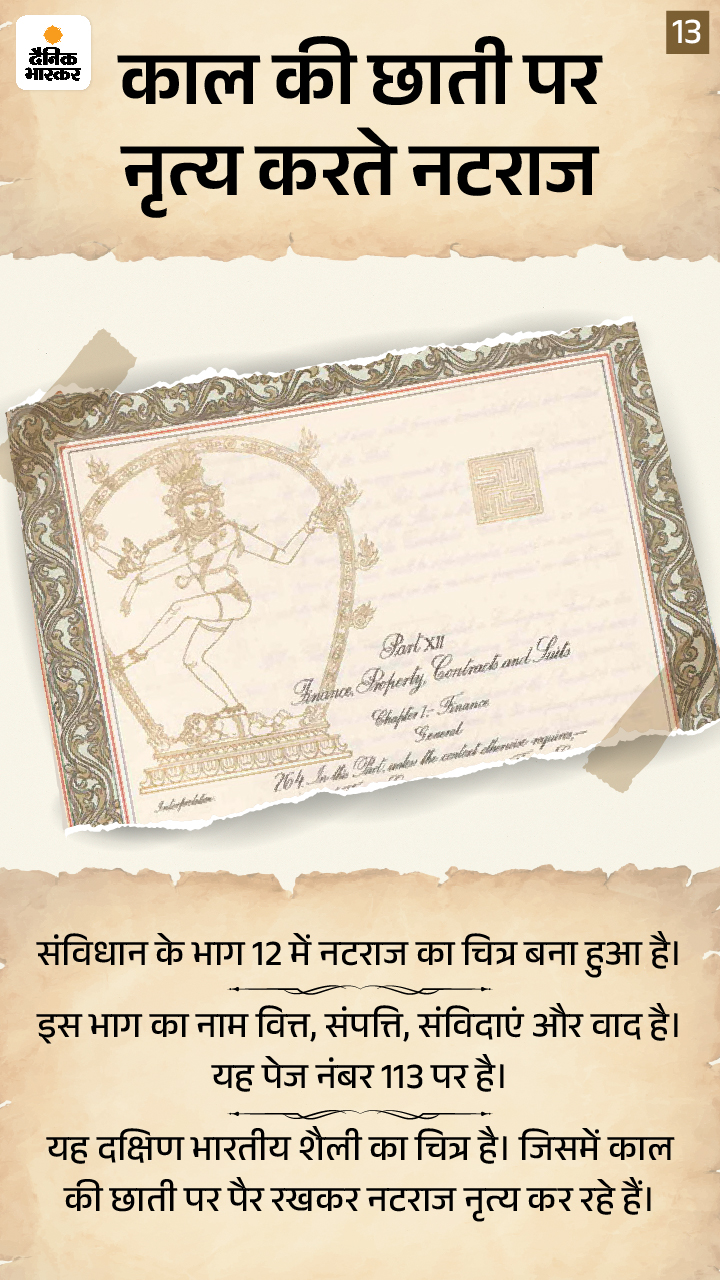 दैनिक
भास्कर
13
काल की छाती पर
नृत्य करते नटराज
Part XII
Finance, Property, Contracts and Suits
Chapter I.- Finance
General
264. In this Part, unless the context otherwise requires,—
Interpretation.
संविधान के भाग 12 में नटराज का चित्र बना हुआ है।
इस भाग का नाम वित्त, संपत्ति, संविदाएं और वाद है।
यह पेज नंबर 113 पर है।
यह दक्षिण भारतीय शैली का चित्र है। जिसमें काल
की छाती पर पैर रखकर नटराज नृत्य कर रहे हैं।